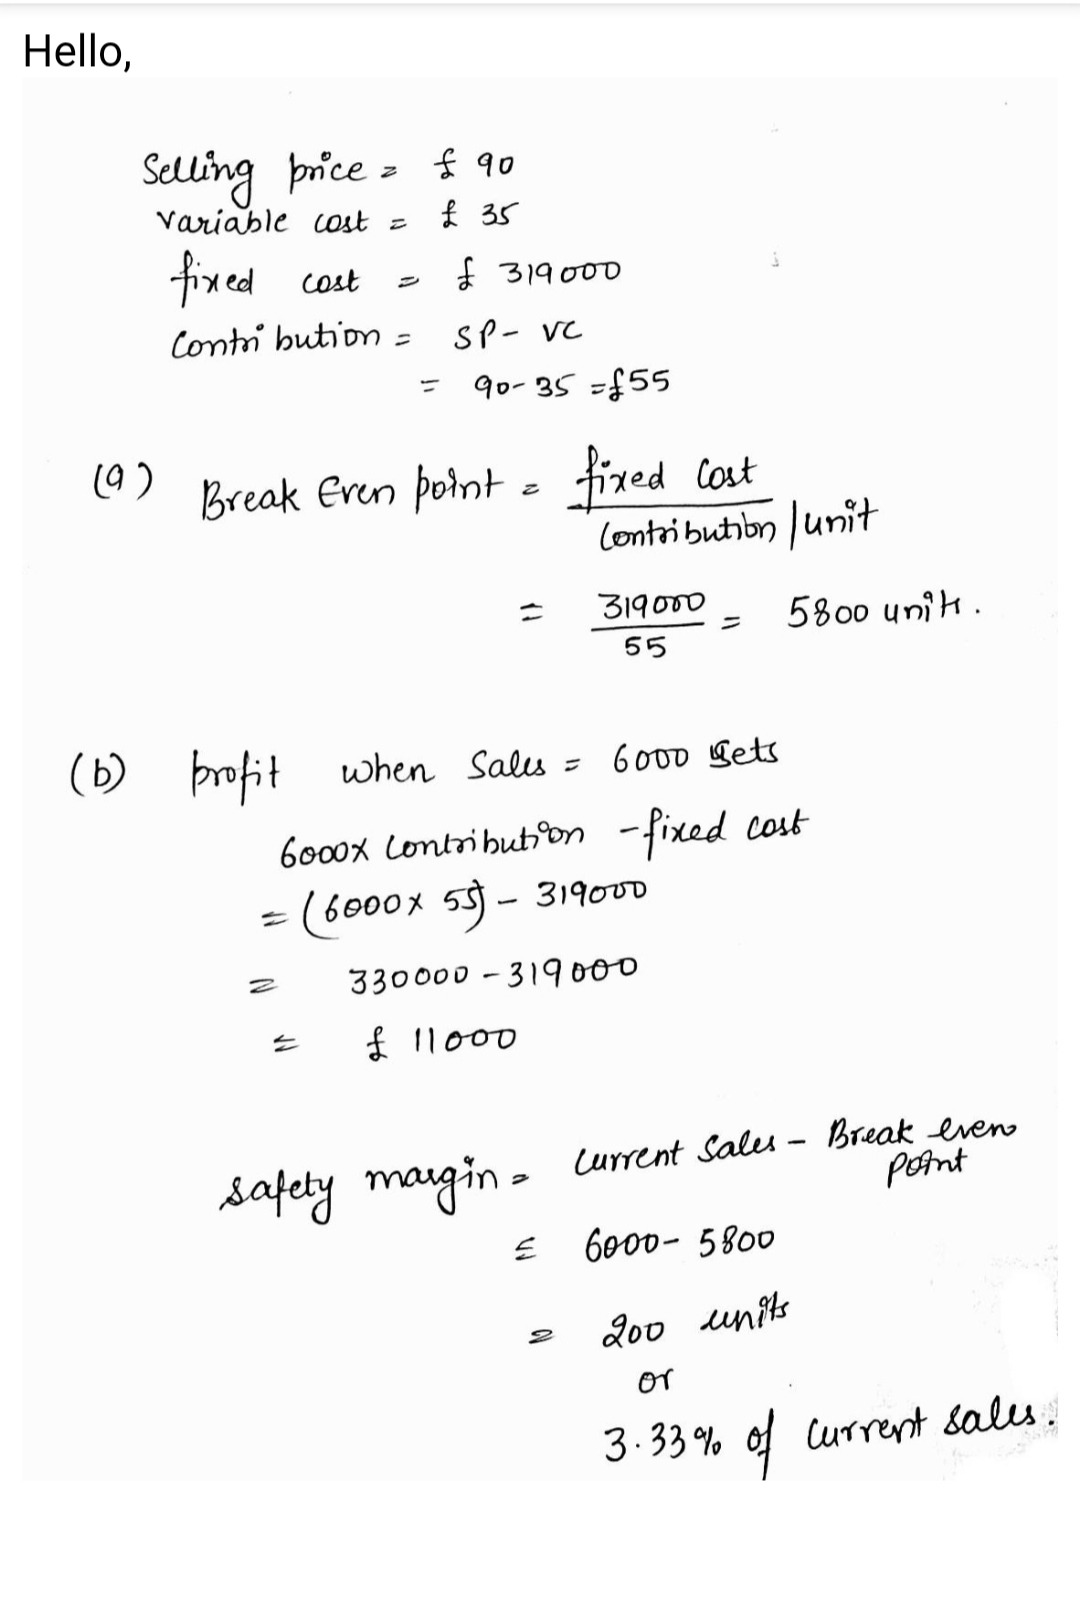 Hello,
Selling price = £ 90
Variable cost = £ 35
fixed cost = £ 319000
Contribution = SP - VC
= 90-35 = £55
(a) Break Even point = fixed Cost
Contribution / unit
= 319000 = 5800 units.
55
(b) profit when Sales = 6000 sets
6000 x Contribution - fixed cost
= (6000 x 55) - 319000
= 330000 - 319000
= £ 11000
safety margin = Current Sales - Break even
point
= 6000 - 5800
= 200 units
or
3.33% of Current sales.